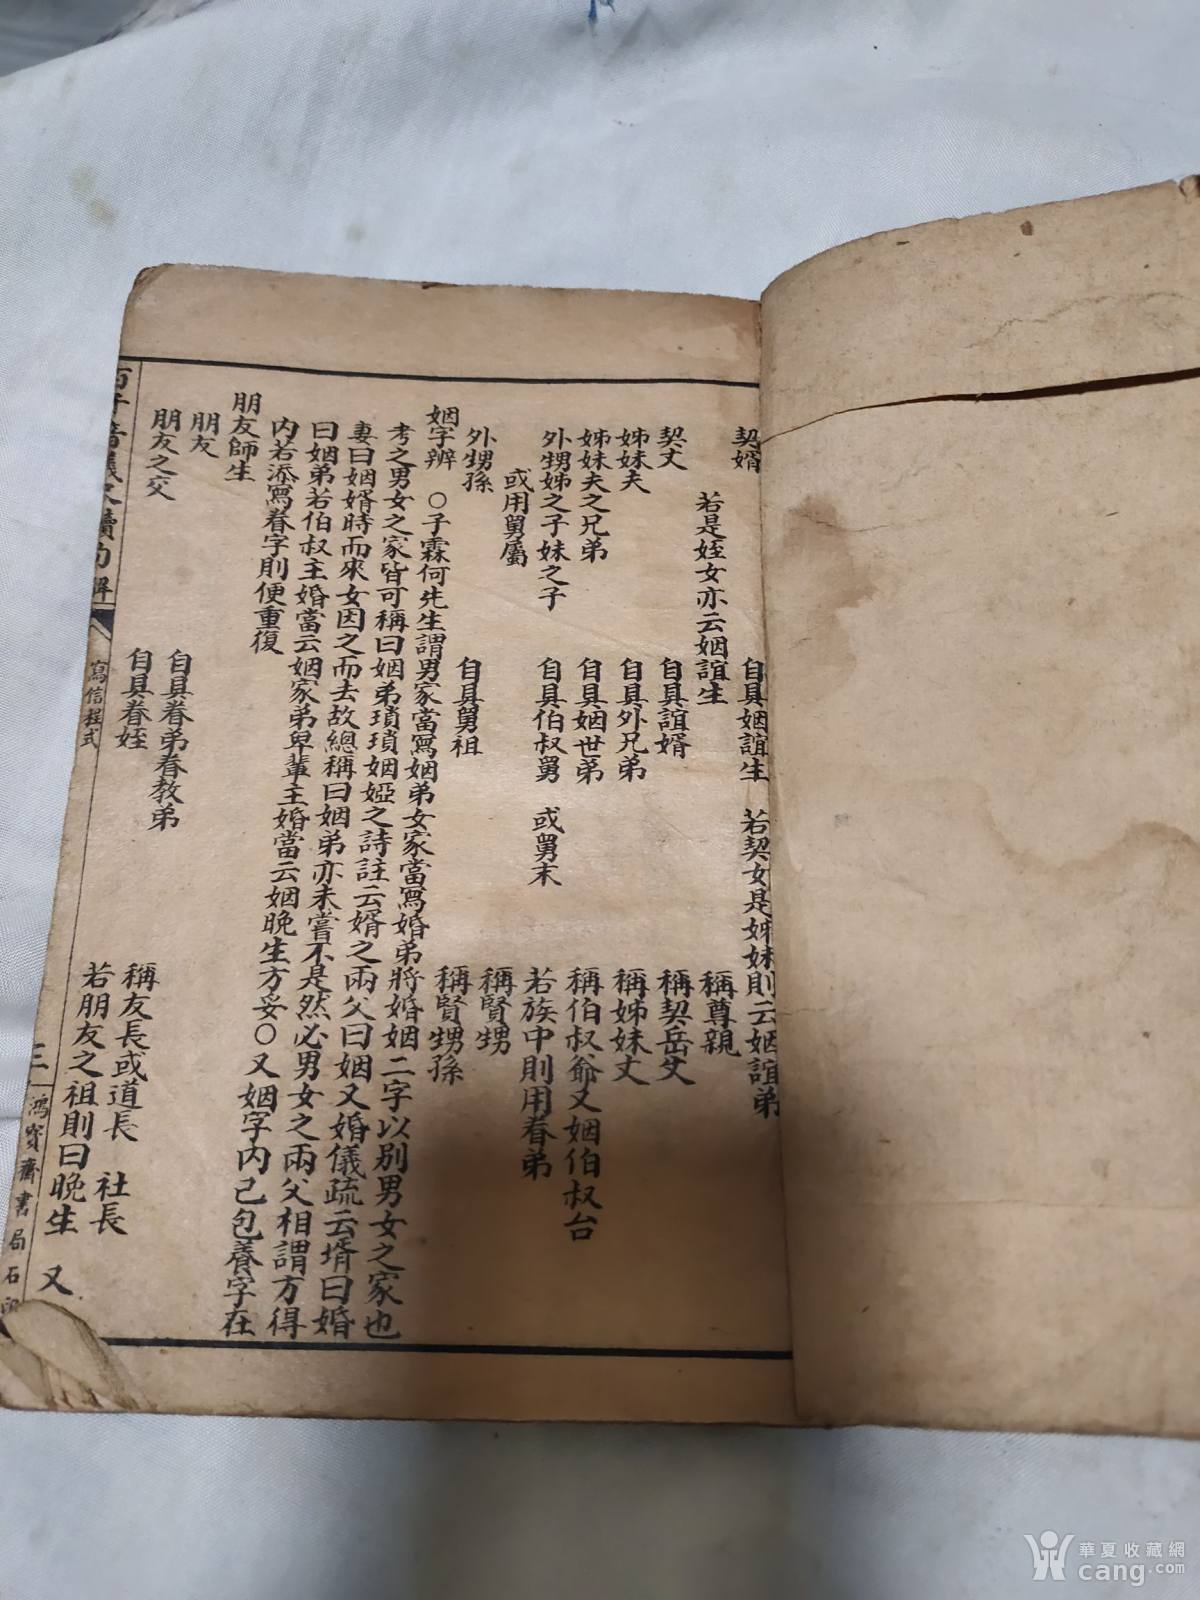 契婿　自具姻誼生　若契女是姊妹則云姻誼弟
若是姪女亦云姻誼生　稱尊親
契丈　自具誼婿　稱契岳丈
姊妹夫　自具外兄弟　稱姊妹丈
姊妹夫之兄弟　自具姻世弟　稱伯叔爺又姻伯叔台
外甥姊之子妹之子　自具伯叔舅　或舅末　若族中則用眷弟
或用舅屬　稱賢甥
外甥孫　自具舅祖　稱賢甥孫
姻字辨　〇子霖何先生謂男家當寫姻弟女家當寫婚弟將婚姻二字以別男女之家也
考之男女之家皆可稱曰姻弟瑣瑣姻婭之詩註云婿之兩父曰姻又婚儀疏云壻曰婚
妻曰姻婿時而來女因之而去故總稱曰姻弟亦未嘗不是然必男女之兩父相謂方得
曰姻弟若伯叔主婚當云姻家弟卑輩主婚當云姻晚生方妥〇又姻字內已包養字在
內若添寫眷字則便重復
朋友師生
朋友　自具眷弟眷教弟　稱友長或道長　社長
朋友之交　自具眷姪　若朋友之祖則曰晚生　又
寫信程式
三
鴻寶齋書局石
華夏收藏網
cang.com